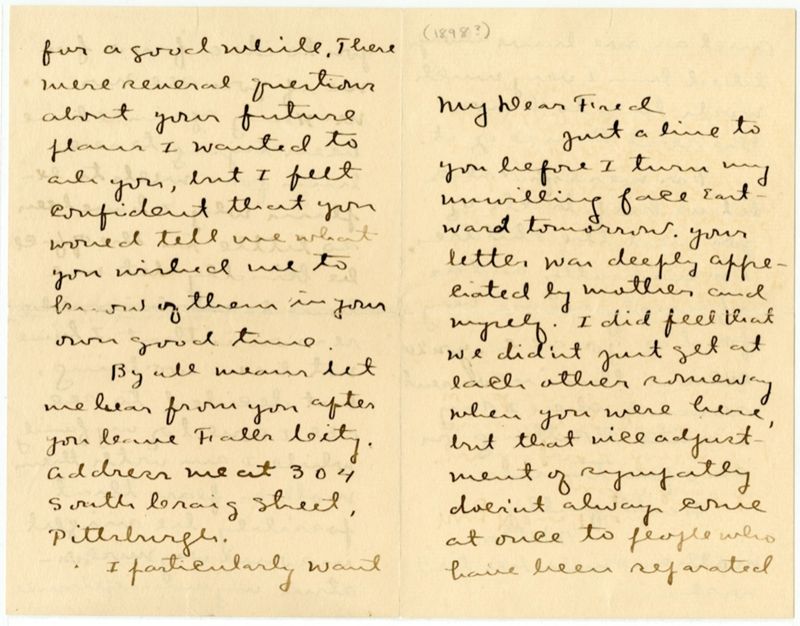 (1898?)
My Dear Fred
Just a line to
you before I turn my
unwilling face East-
ward tomorrow. Your
letter was deeply appre-
ciated by mother and
myself. I did feel that
we did'nt just get at
each other someway
when you were here,
but that nice adjust-
ment of sympathy
does'nt always come
at once to people who
have been separated
for a good while. There
were several questions
about your future
plans I wanted to
ask you, but I felt
confident that you
would tell me what
you wished me to
know of them in your
own good time.
By all means let
me hear from you after
you leave Falls City.
Address me at 304
South Craig Street,
Pittsburgh.
I particularly want